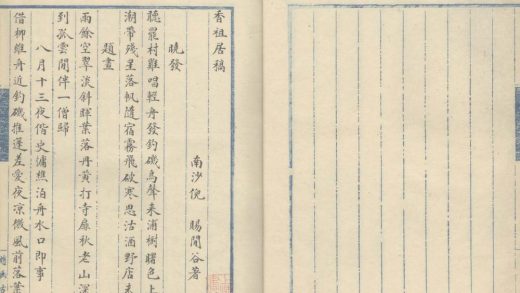 香祖居稿
南沙倪 賜閒谷著
曉發
聽罷村雞唱輕舟發釣磯鳥聲来浦樹曙色上
潮帶殘星落帆隨宿霧飛破寒思沽酒野店未
題畫
雨餘空翠淡斜暉葉落丹黄打寺扉秋老山深
到孤雲閒伴一僧歸
八月十三夜偕史漁樵泊舟水口即事
借柳維舟近釣磯推蓬差愛夜凉微風前落葉